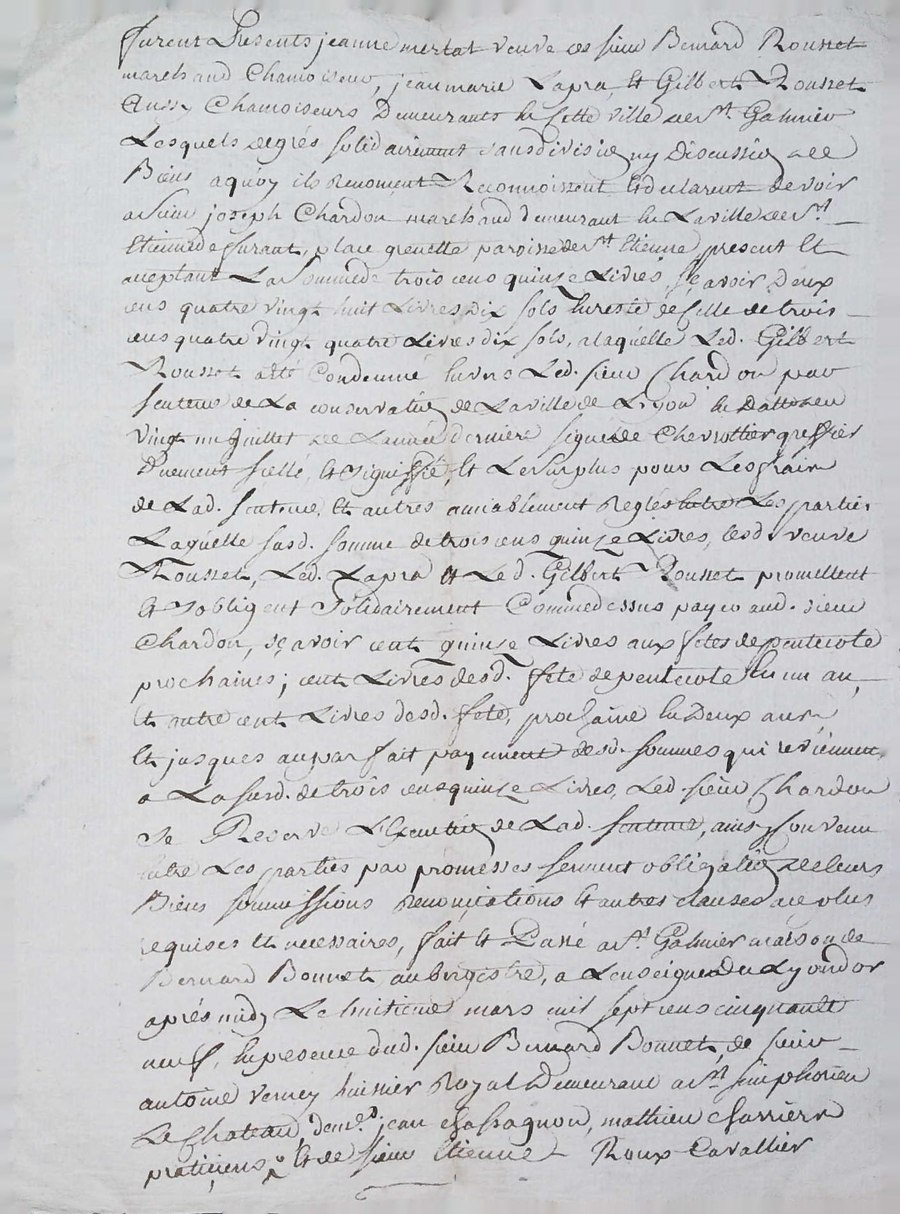 furent Presents jeanne mertat veuve de sieur Bernard Rousset
marchand Chamoiseur, jean marie Lapra, et Gilbert Rousset
Aussy Chamoiseurs Demeurants en Cette ville de St. Galmier
Lesquels de grés solidairement sans division ny Discussion de
Biens a quoy ils Renoncent Reconnoissent et declarent devoir
a sieur joseph Chardon marchand demeurant en La ville de St.
Etienne de furant, place grenette paroisse de St. Etienne, present et
acceptant La somme de trois cens quinze Livres, sçavoir Deux
cens quatre vingt huit Livres Dix sols, en reste de Celle de trois
cens quatre vingt quatre Livres dix sols, a laquelle Led. Gilbert
Rousset a été Condemné envers Led. sieur Chardon par
sentence de La conservation de La ville de Lyon en Datte du
vingt un juillet de L'année derniere signée de Chevrottier greffier
Duement scellé, et signiffié, et Le surplus pour Les frais
de Lad. sentence, et autres amiablement Reglés entre Les parties
Laquelle susd. somme de trois cens quinze Livres, lesd. veuve
Rousset, Led. Lapra et Led. Gilbert Rousset promettent
et s'obligent Solidairement Comme dessus payer aud. sieur
Chardon, sçavoir cent quinze Livres aux fêtes de pentecote
prochaines; cent Livres desd. fête de pentecote en un an,
et autre cent Livres desd. fete, prochaine en Deux ans
et jusques au parfait payement desd. sommes qui reviennent
a La susd. de trois cens quinze Livres, Led. sieur Chardon
se Reserve L'Execution de Lad. sentence, ainsy Convenu
entre Les parties par promesses serment obligation de leurs
Biens soumissions renonciations et autres clauses de plus
requises et necessaires, fait et Passé a St. Galmier maison de
Bernard Bonnet aubergistre, a L'enseigne du Lyon d'or
aprés midy Le huitieme mars mil sept cens cinquante
neuf, en presence dud. sieur Bernard Bonnet, de sieur
antoine verney huissier Royal Demeurant a St. simphorien
Le Chateau, jean Chassagnon, mathieu Charriere
praticiens, et de sieur Etienne Roux Cavallier